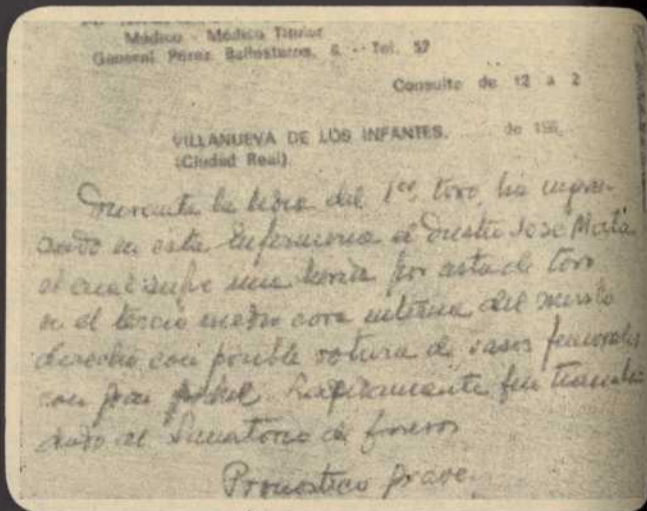 Médico - Médico Titular
General Pérez Ballesteros, 6 - Tel. 57
Consulta de 12 a 2
VILLANUEVA DE LOS INFANTES, ...... de 196
(Ciudad Real)
Durante la lidia del 1er. toro, ha ingre-
sado en esta Enfermería el diestro José Mata
el cual sufre una herida por asta de toro
en el tercio medio cara interna del muslo
derecho con posible rotura de vasos femorales
con gran Rapidamente fue trasla-
dado al Sanatorio de Toreros
Pronostico grave.